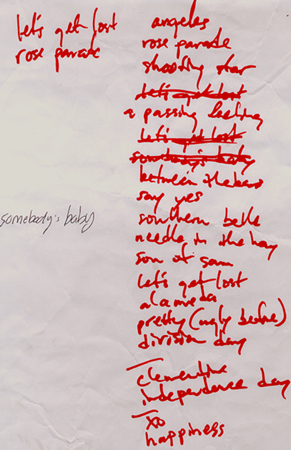 let's get lost
rose parade
angeles
rose parade
shooting star
let's get lost
a passing feeling
let's get lost
somebody's baby
between the bars
say yes
somebody's baby
southern belle
needle in the hay
son of sam
let's get lost
alameda
pretty (ugly before)
division day
clementine
independence day
xo
happiness